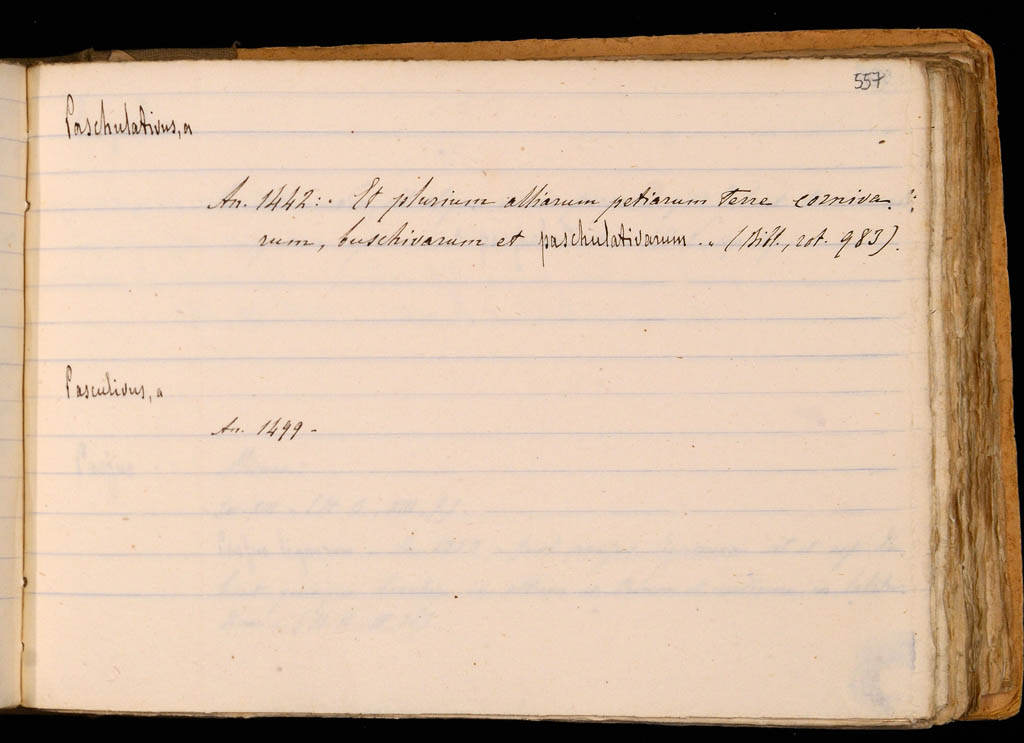 557
Paschulativus, a
An. 1442:. Et plurium alliarum petiarum Terre corniva :
rum, buschivarum et paschulativarum .. (Bitt., rot. 983).
Pasculivus, a
An. 1499 -